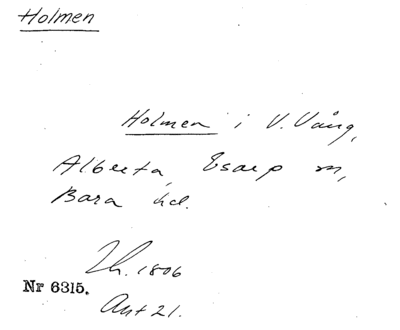 Holmen
Holmen i V. Vång,
Alberta, Esarp m,
Bara hd.
Lh. 1806
Nr 6315.
Ant 21.